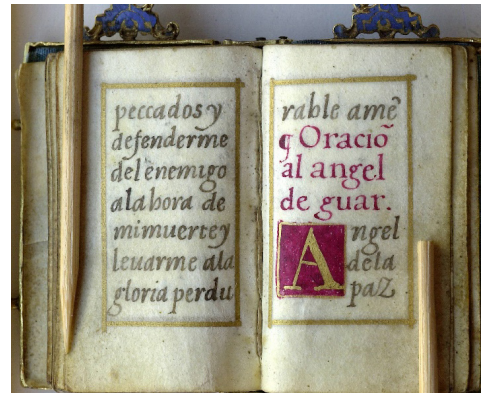 peccados y
defenderme
del enemigo
ala hora de
mi muerte y
leuarme ala
gloria perdu
rable amẽ
¶ Oraciõ
al angel
de guar.
Angel
dela
paz